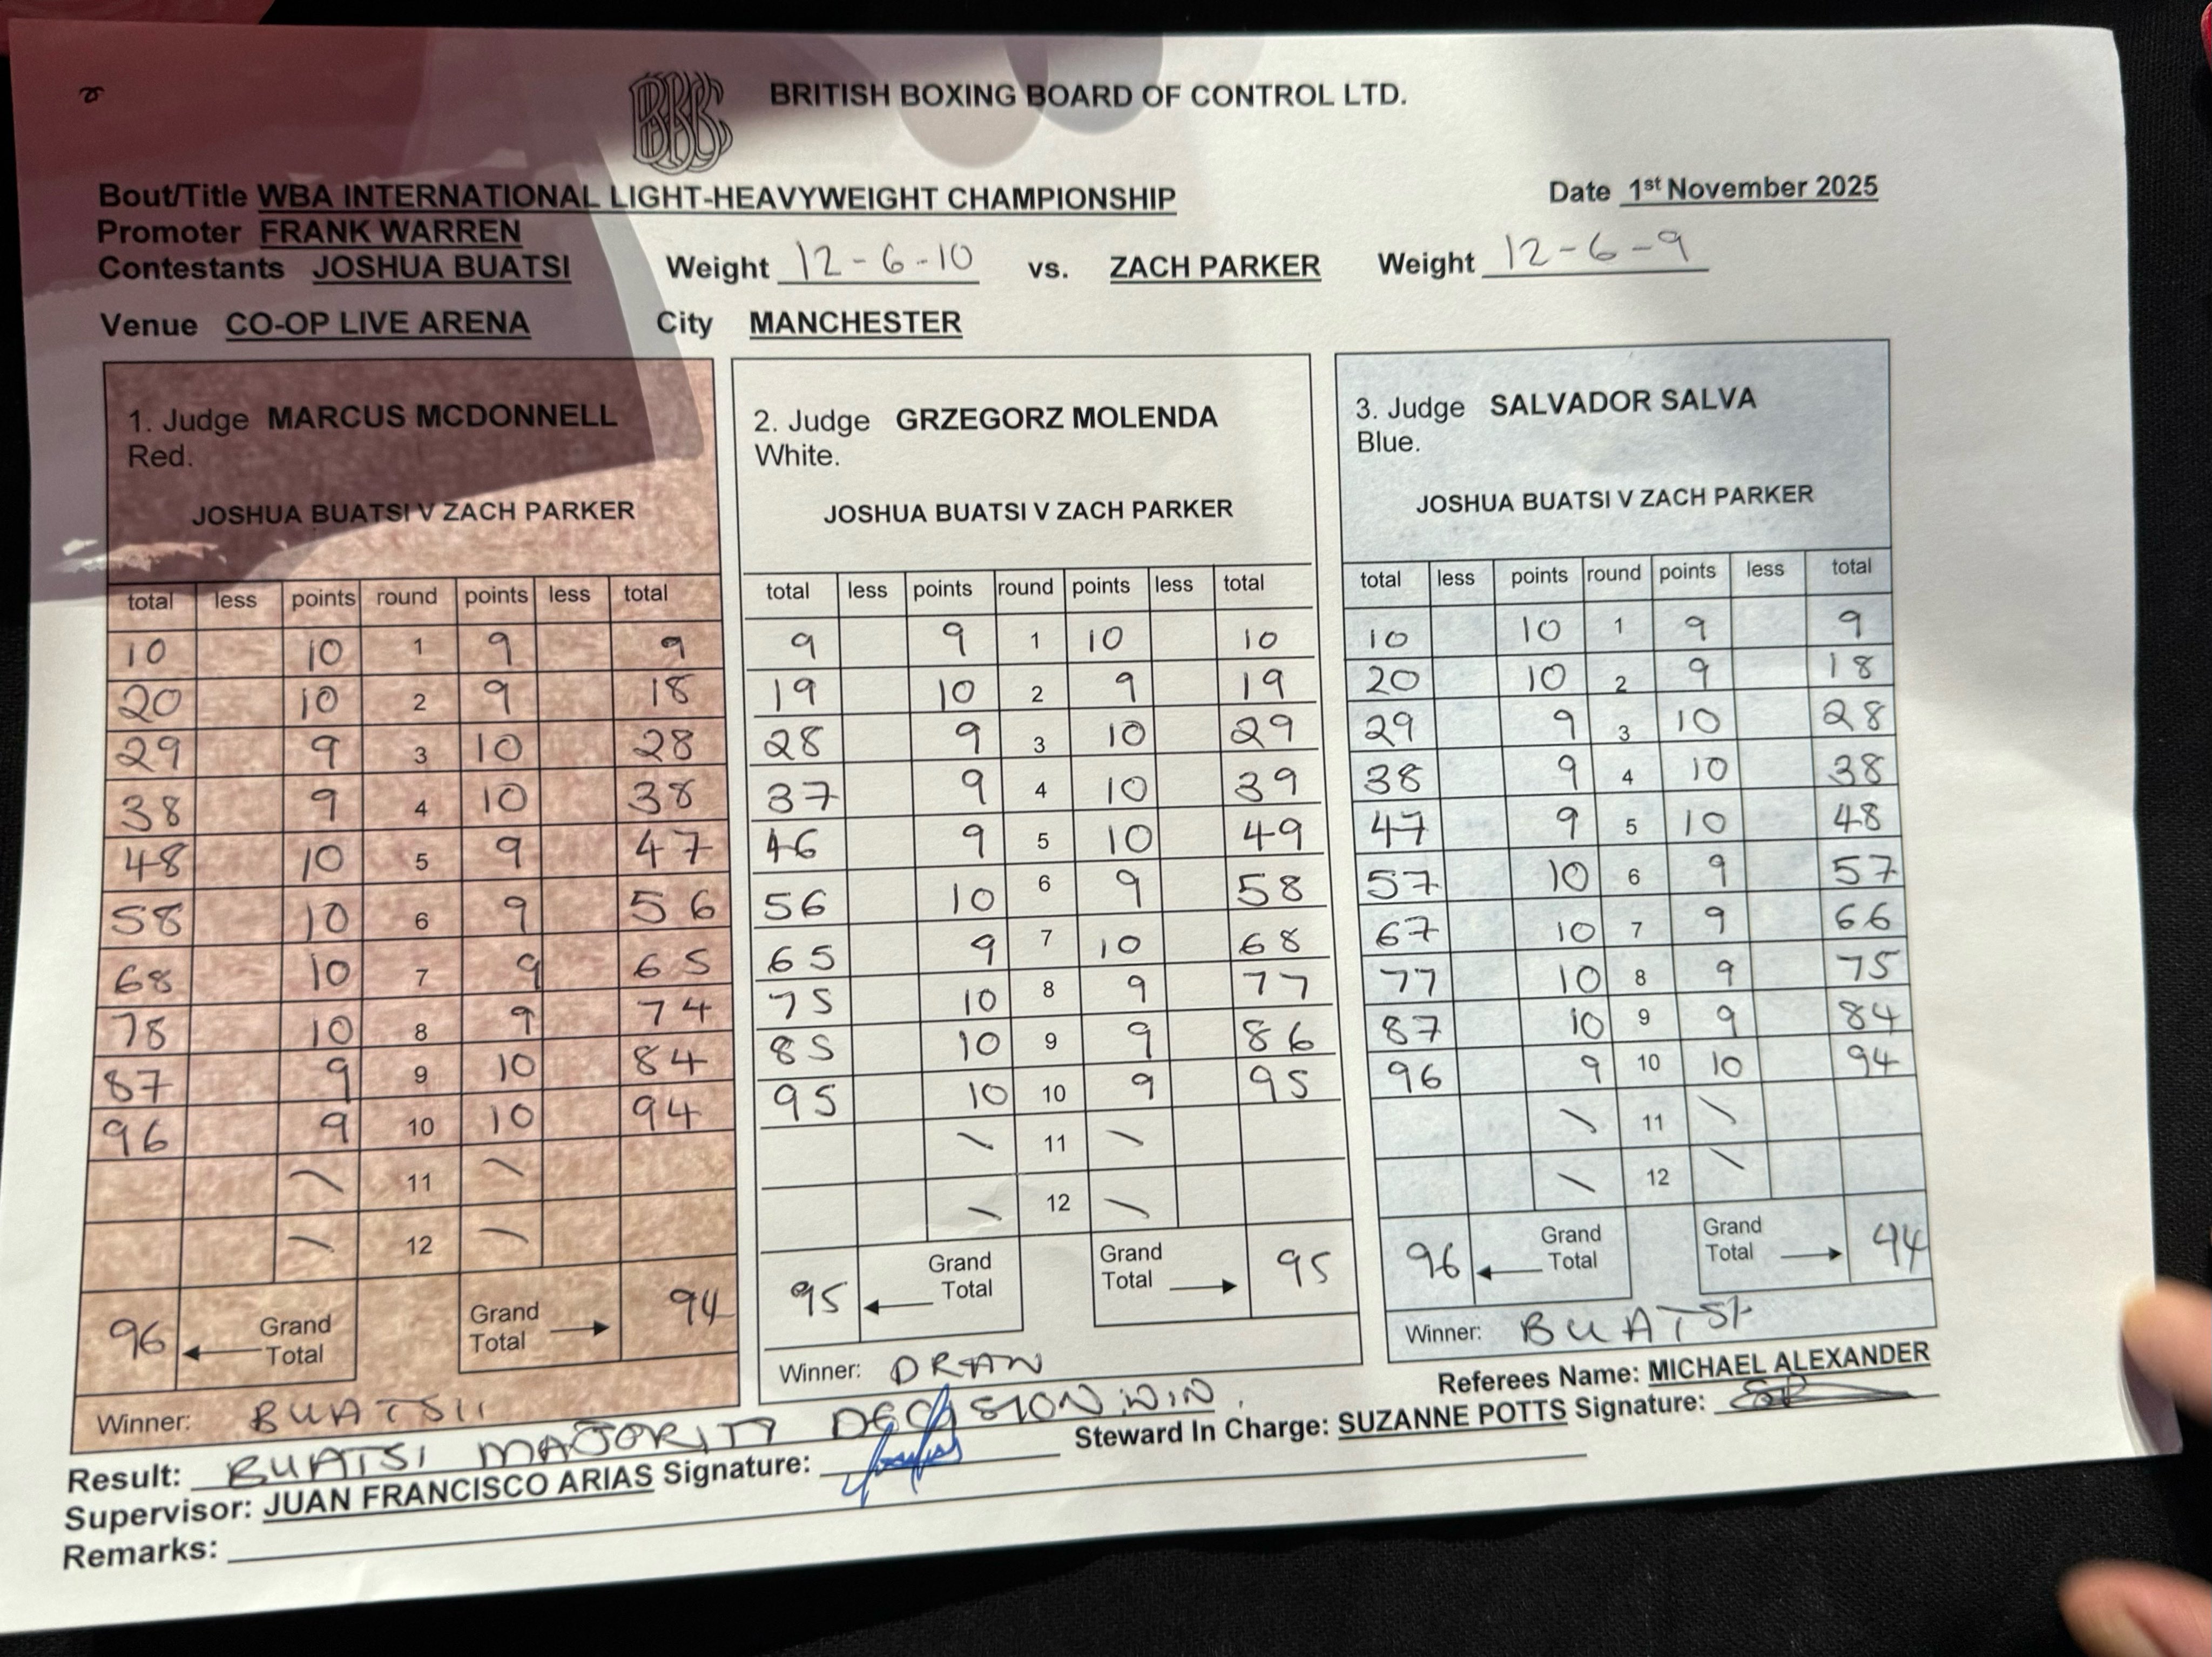 BBBC
BRITISH BOXING BOARD OF CONTROL LTD.
Bout/Title WBA INTERNATIONAL LIGHT-HEAVYWEIGHT CHAMPIONSHIP Date 1st November 2025
Promoter FRANK WARREN
Contestants JOSHUA BUATSI Weight 12-6-10 vs. ZACH PARKER Weight 12-6-9
Venue CO-OP LIVE ARENA City MANCHESTER
1. Judge MARCUS MCDONNELL
Red.
JOSHUA BUATSI V ZACH PARKER
total less points round points less total
10 10 1 9 9
20 10 2 9 18
29 9 3 10 28
38 9 4 10 38
48 10 5 9 47
58 10 6 9 56
68 10 7 9 65
78 10 8 9 74
87 9 9 10 84
96 9 10 10 94
\ 11 \
\ 12 \
96 Grand Total Grand Total 94
Winner: BUATSII
2. Judge GRZEGORZ MOLENDA
White.
JOSHUA BUATSI V ZACH PARKER
total less points round points less total
9 9 1 10 10
19 10 2 9 19
28 9 3 10 29
37 9 4 10 39
46 9 5 10 49
56 10 6 9 58
65 9 7 10 68
75 10 8 9 77
85 10 9 9 86
95 10 10 9 95
\ 11 \
\ 12 \
95 Grand Total Grand Total 95
Winner: DRAW
3. Judge SALVADOR SALVA
Blue.
JOSHUA BUATSI V ZACH PARKER
total less points round points less total
10 10 1 9 9
20 10 2 9 18
29 9 3 10 28
38 9 4 10 38
47 9 5 10 48
57 10 6 9 57
67 10 7 9 66
77 10 8 9 75
87 10 9 9 84
96 9 10 10 94
\ 11 \
\ 12 \
96 Grand Total Grand Total 94
Winner: BUATSI
Referees Name: MICHAEL ALEXANDER
Result: BUATSI MAJORITY DECISION WIN.
Steward In Charge: SUZANNE POTTS Signature:
Supervisor: JUAN FRANCISCO ARIAS Signature:
Remarks: